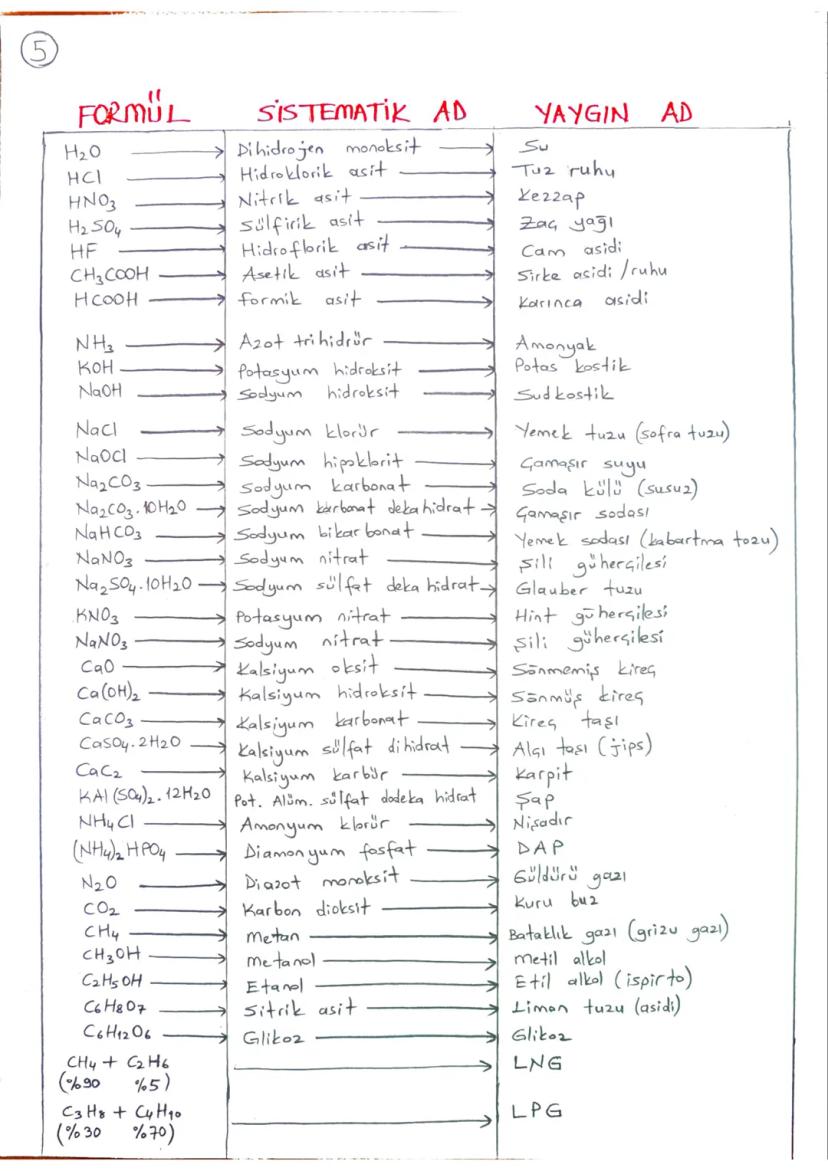 5
FORMÜL SİSTEMATİK AD YAYGIN AD
H2O Dihidrojen monoksit Su
HCl Hidroklorik asit Tuz ruhu
HNO3 Nitrik asit Kezzap
H2SO4 Sülfirik asit Zaç yağı
HF Hidroflorik asit Cam asidi
CH3COOH Asetik asit Sirke asidi /ruhu
HCOOH formik asit Karınca asidi
NH3 Azot trihidrür Amonyak
KOH Potasyum hidroksit Potas kostik
NaOH Sodyum hidroksit Sudkostik
NaCl Sodyum klorür Yemek tuzu (sofra tuzu)
NaOCl Sodyum hipoklorit Çamaşır suyu
Na2CO3 Sodyum karbonat Soda külü (susuz)
Na2CO3.10H2O Sodyum karbonat dekahidrat Çamaşır sodası
NaHCO3 Sodyum bikarbonat Yemek sodası (kabartma tozu)
NaNO3 Sodyum nitrat Şili güherçilesi
Na2SO4.10H2O Sodyum sülfat deka hidrat Glauber tuzu
KNO3 Potasyum nitrat Hint güherçilesi
NaNO3 Sodyum nitrat Şili güherçilesi
CaO Kalsiyum oksit Sönmemiş kireç
Ca(OH)2 Kalsiyum hidroksit Sönmüş kireç
CaCO3 Kalsiyum karbonat Kireç taşı
CaSO4.2H2O Kalsiyum sülfat dihidrat Alçı taşı (jips)
CaC2 Kalsiyum karbür Karpit
KAl(SO4)2.12H2O Pot. Alüm. sülfat dodeka hidrat Şap
NH4Cl Amonyum klorür Nişadır
(NH4)2HPO4 Diamonyum fosfat DAP
N2O Diazot monoksit Güldürü gazı
CO2 Karbon dioksit Kuru buz
CH4 Metan Bataklık gazı (grizu gazı)
CH3OH metanol metil alkol
C2H5OH Etanol Etil alkol (ispirto)
C6H8O7 Sitrik asit Limon tuzu (asidi)
C6H12O6 Glikoz Glikoz
CH4 + C2H6 LNG
(%90 %5)
C3H8 + C4H10 LPG
(%30 %70)